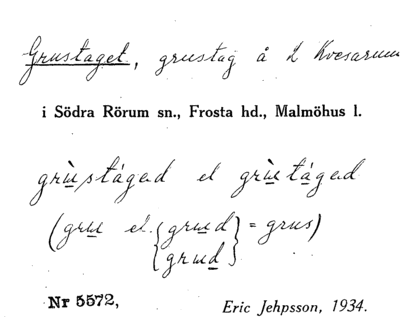 Grustaget, grustag å 2 Kvesarum
i Södra Rörum sn., Frosta hd., Malmöhus l.
grùstáged el grùetáged
(gru el. {grud} = grus)
{grud}
Nr 5572,
Eric Jehpsson, 1934.